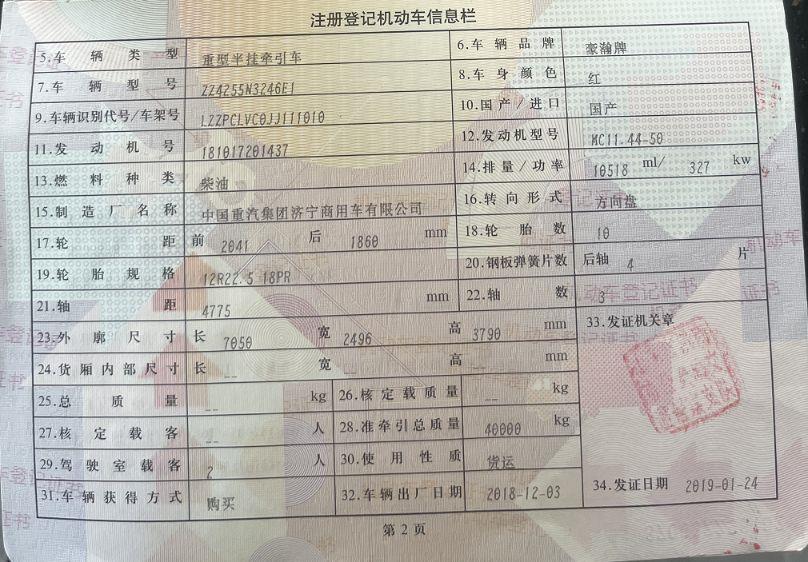 注册登记机动车信息栏
5.车辆类型 重型半挂牵引车 6.车辆品牌 豪瀚牌
7.车辆型号 ZZ4255N3246E1 8.车身颜色 红
9.车辆识别代号/车架号 LZZPCLVC0JJ111010 10.国产/进口 国产
11.发动机号 181017201437 12.发动机型号 MC11.44-50
13.燃料种类 柴油 14.排量/功率 10518 ml/ 327 kw
15.制造厂名称 中国重汽集团济宁商用车有限公司 16.转向形式 方向盘
17.轮距 前 2041 后 1860 mm 18.轮胎数 10
19.轮胎规格 12R22.5 18PR 20.钢板弹簧片数 后轴 4 片
21.轴距 4775 mm 22.轴数 3
23.外廓尺寸 长 7050 宽 2496 高 3790 mm 33.发证机关章
24.货厢内部尺寸 长 -- 宽 -- 高 -- mm
25.总质量 -- kg 26.核定载质量 -- kg
27.核定载客 -- 人 28.准牵引总质量 40000 kg
29.驾驶室载客 2 人 30.使用性质 货运
31.车辆获得方式 购买 32.车辆出厂日期 2018-12-03 34.发证日期 2019-01-24
第2页